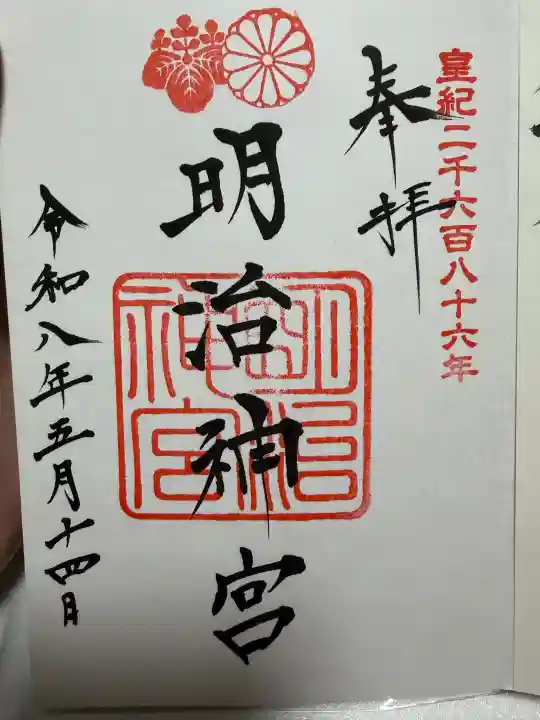 皇紀二千六百八十六年
奉拝
明治神宮
明治神宮
令和八年五月十四日